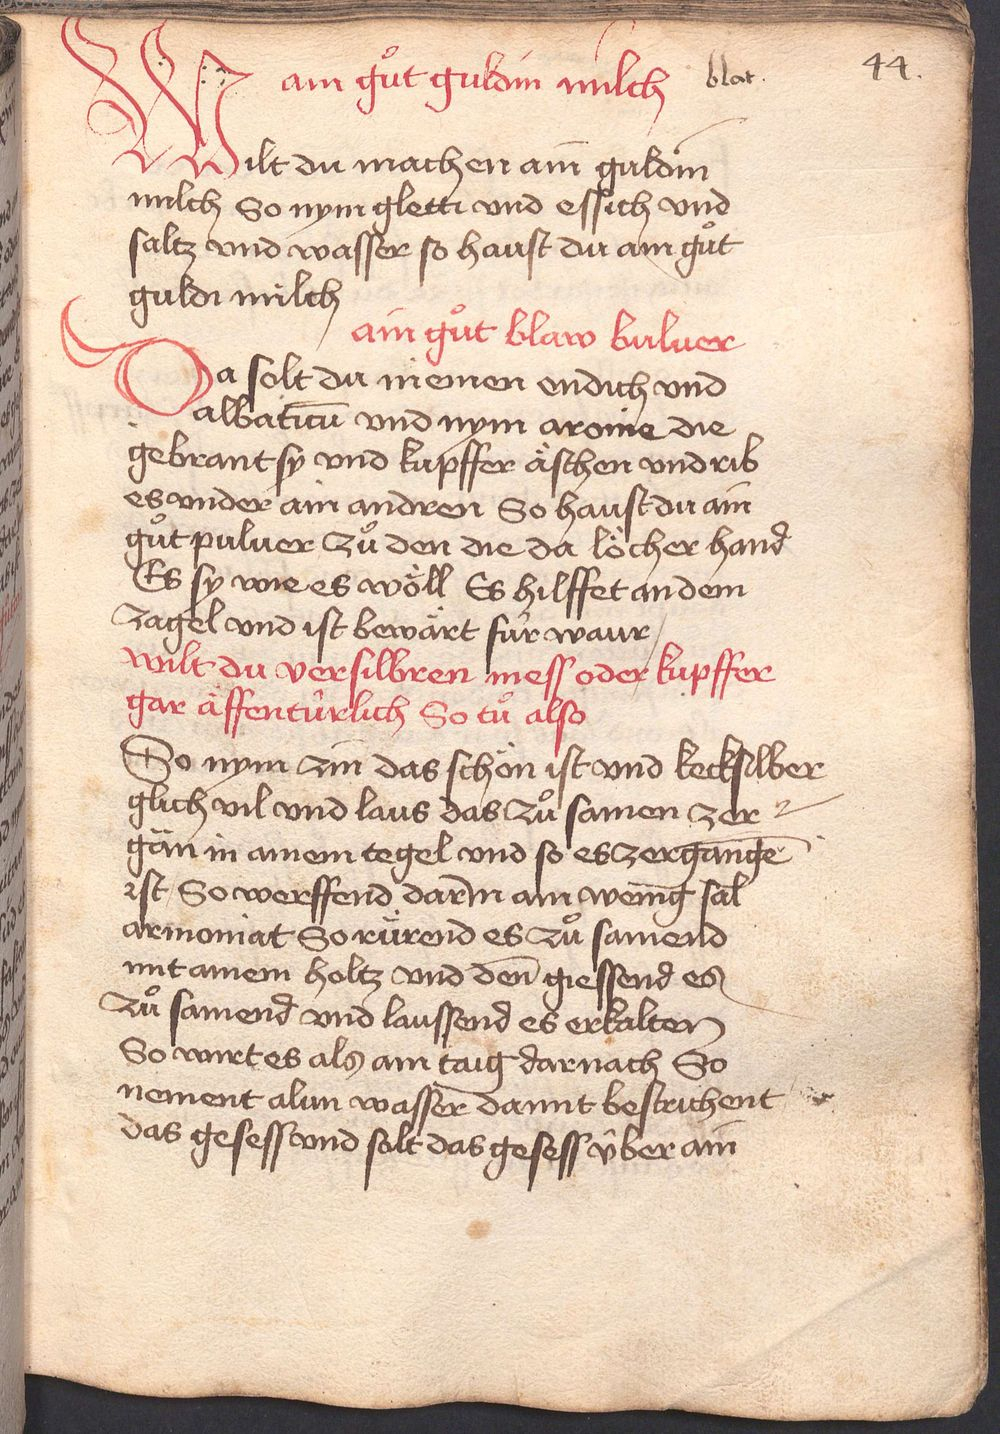 ain gůt guldin milch blat. 44.
Wilt du machen ain guldin
milch So nym gletti vnd essich vnd
saltz vnd wasser so haust du ain gůt
guldi milch
ain gůt blaw buluer
Da solt du niemen endich vnd
albaticū vnd nym aroine die
gebrant sy vnd kupffer äschen vnd rib
es vnder ain andren So haust du ain
gůt puluer zů den die da löcher hand
Es sy wie es wöll Es hilffet an dem
zagel vnd ist bewärt für waur
wilt du versilbren mess oder kupffer
gar äffentürlich So tů also
So nym zin das schön ist vnd kecksilber
glich vil vnd laus das zů samen zer
gän in ainem tegel vnd so es zergangē
ist So werffend darin ain wenig sal
armoniat So rürend es zů samend
mit ainem holtz vnd den̄ giessend es
zů samend vnd laussend es erkalten
So wirt es als ain taig darnach So
nement alun wasser damit bestrichent
das gesess vnd solt das gesess über ain